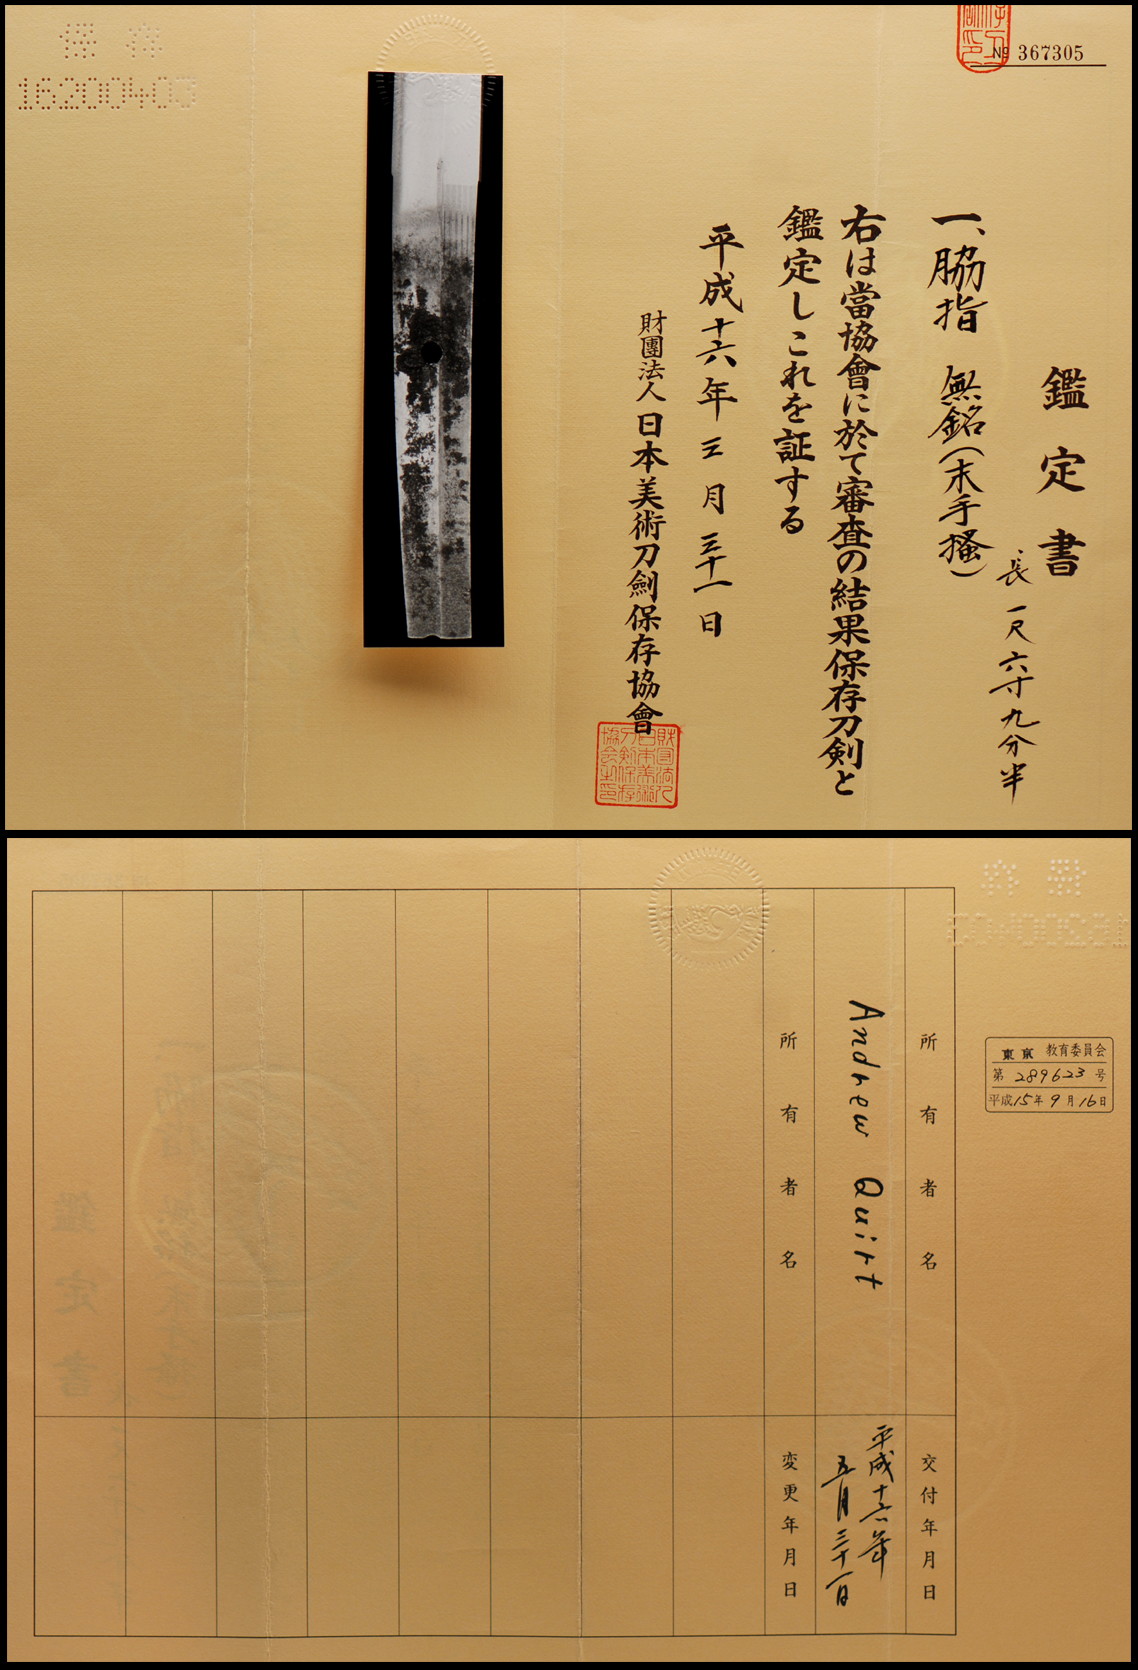 保存
16200403
No 367305
鑑定書
一、脇指 無銘(末手掻)
長 一尺六寸九分半
右は當協會に於て審査の結果保存刀剣と
鑑定しこれを証する
平成十六年三月三十一日
財團法人 日本美術刀劍保存協會
財団法人
日本美術
刀剣保存
協会之印
東京 教育委員会
第 289623 号
平成15年9月16日
所有者名
交付年月日
Andrew Quirt
平成十六年
五月三十一日
所有者名
変更年月日